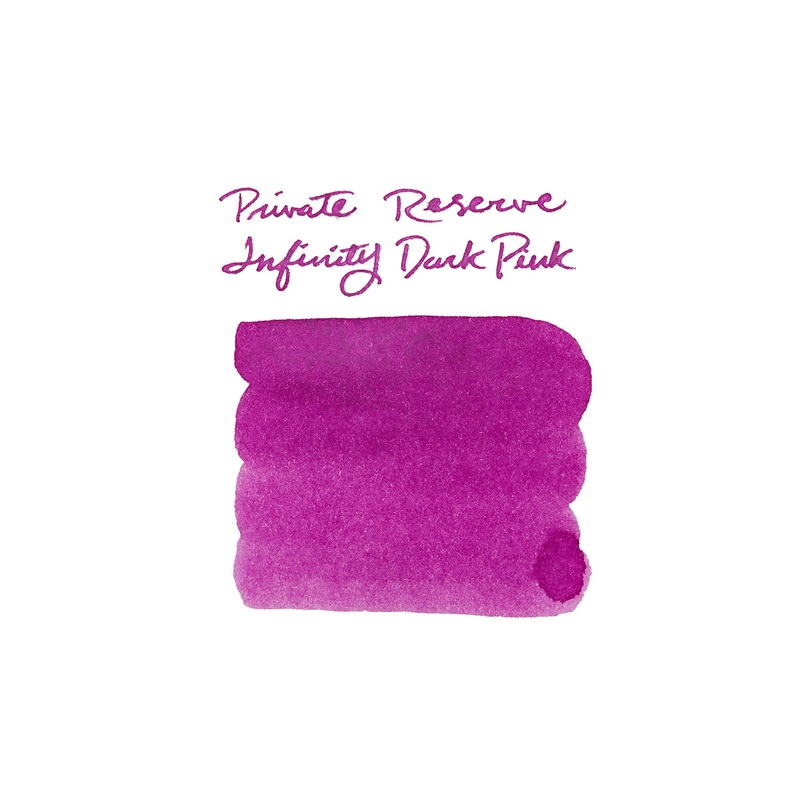 Private Reserve
Infinity Dark Pink